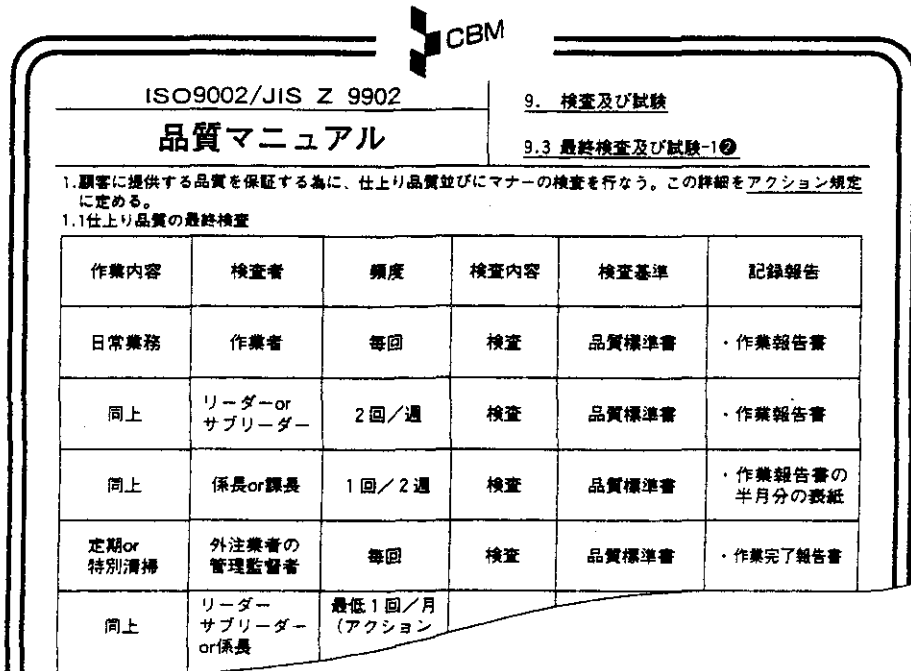 CBM
ISO9002/JIS Z 9902
品質マニュアル
9. 検査及び試験
9.3 最終検査及び試験-1❷
1.顧客に提供する品質を保証する為に、仕上り品質並びにマナーの検査を行なう。この詳細をアクション規定
に定める。
1.1仕上り品質の最終検査
作業内容 検査者 頻度 検査内容 検査基準 記録報告
日常業務 作業者 毎回 検査 品質標準書 ・作業報告書
同上 リーダーor
サブリーダー 2回/週 検査 品質標準書 ・作業報告書
同上 係長or課長 1回/2週 検査 品質標準書 ・作業報告書の
半月分の表紙
定期or
特別清掃 外注業者の
管理監督者 毎回 検査 品質標準書 ・作業完了報告書
同上 リーダー
サブリーダー
or係長 最低1回/月
(アクション